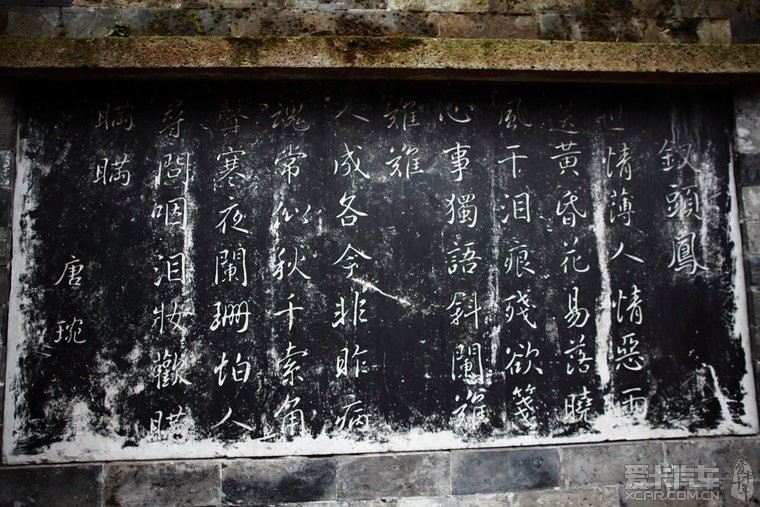 釵頭鳳
世情薄人情惡雨
送黃昏花易落曉
風干泪痕殘欲箋
心事獨語斜闌難
難難
人成各今非昨病
魂常似秋千索角
聲寒夜闌珊怕人
尋問咽泪妝歡瞞
瞞瞞
唐琬
爱卡汽车
XCAR.COM.CN